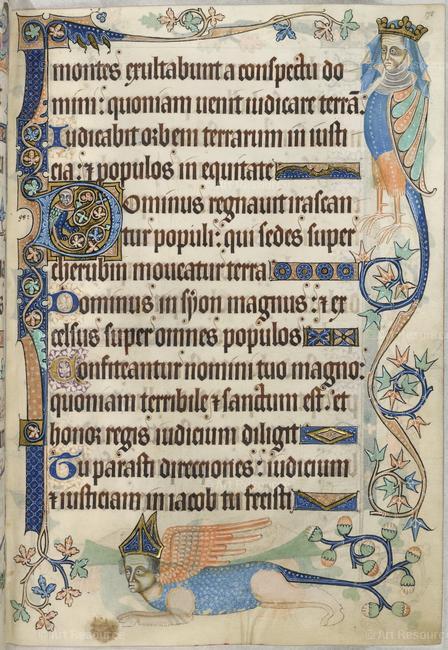 montes exultabunt a conspectu do
mini: quoniam uenit iudicare terrā.
Iudicabit orbem terrarum in iusti
cia: ⁊ populos in equitate
Dominus regnauit irascan
tur populi: qui sedes super
cherubin moueatur terra
Dominus in syon magnus: ⁊ ex
celsus super omnes populos
Confiteantur nomini tuo magno:
quoniam terribile ⁊ sanctum est. et
honor regis iudicium diligit
Tu parasti direcciones: iudicium
⁊ iusticiam in iacob tu fecisti
© Art Resource
© Art Resource